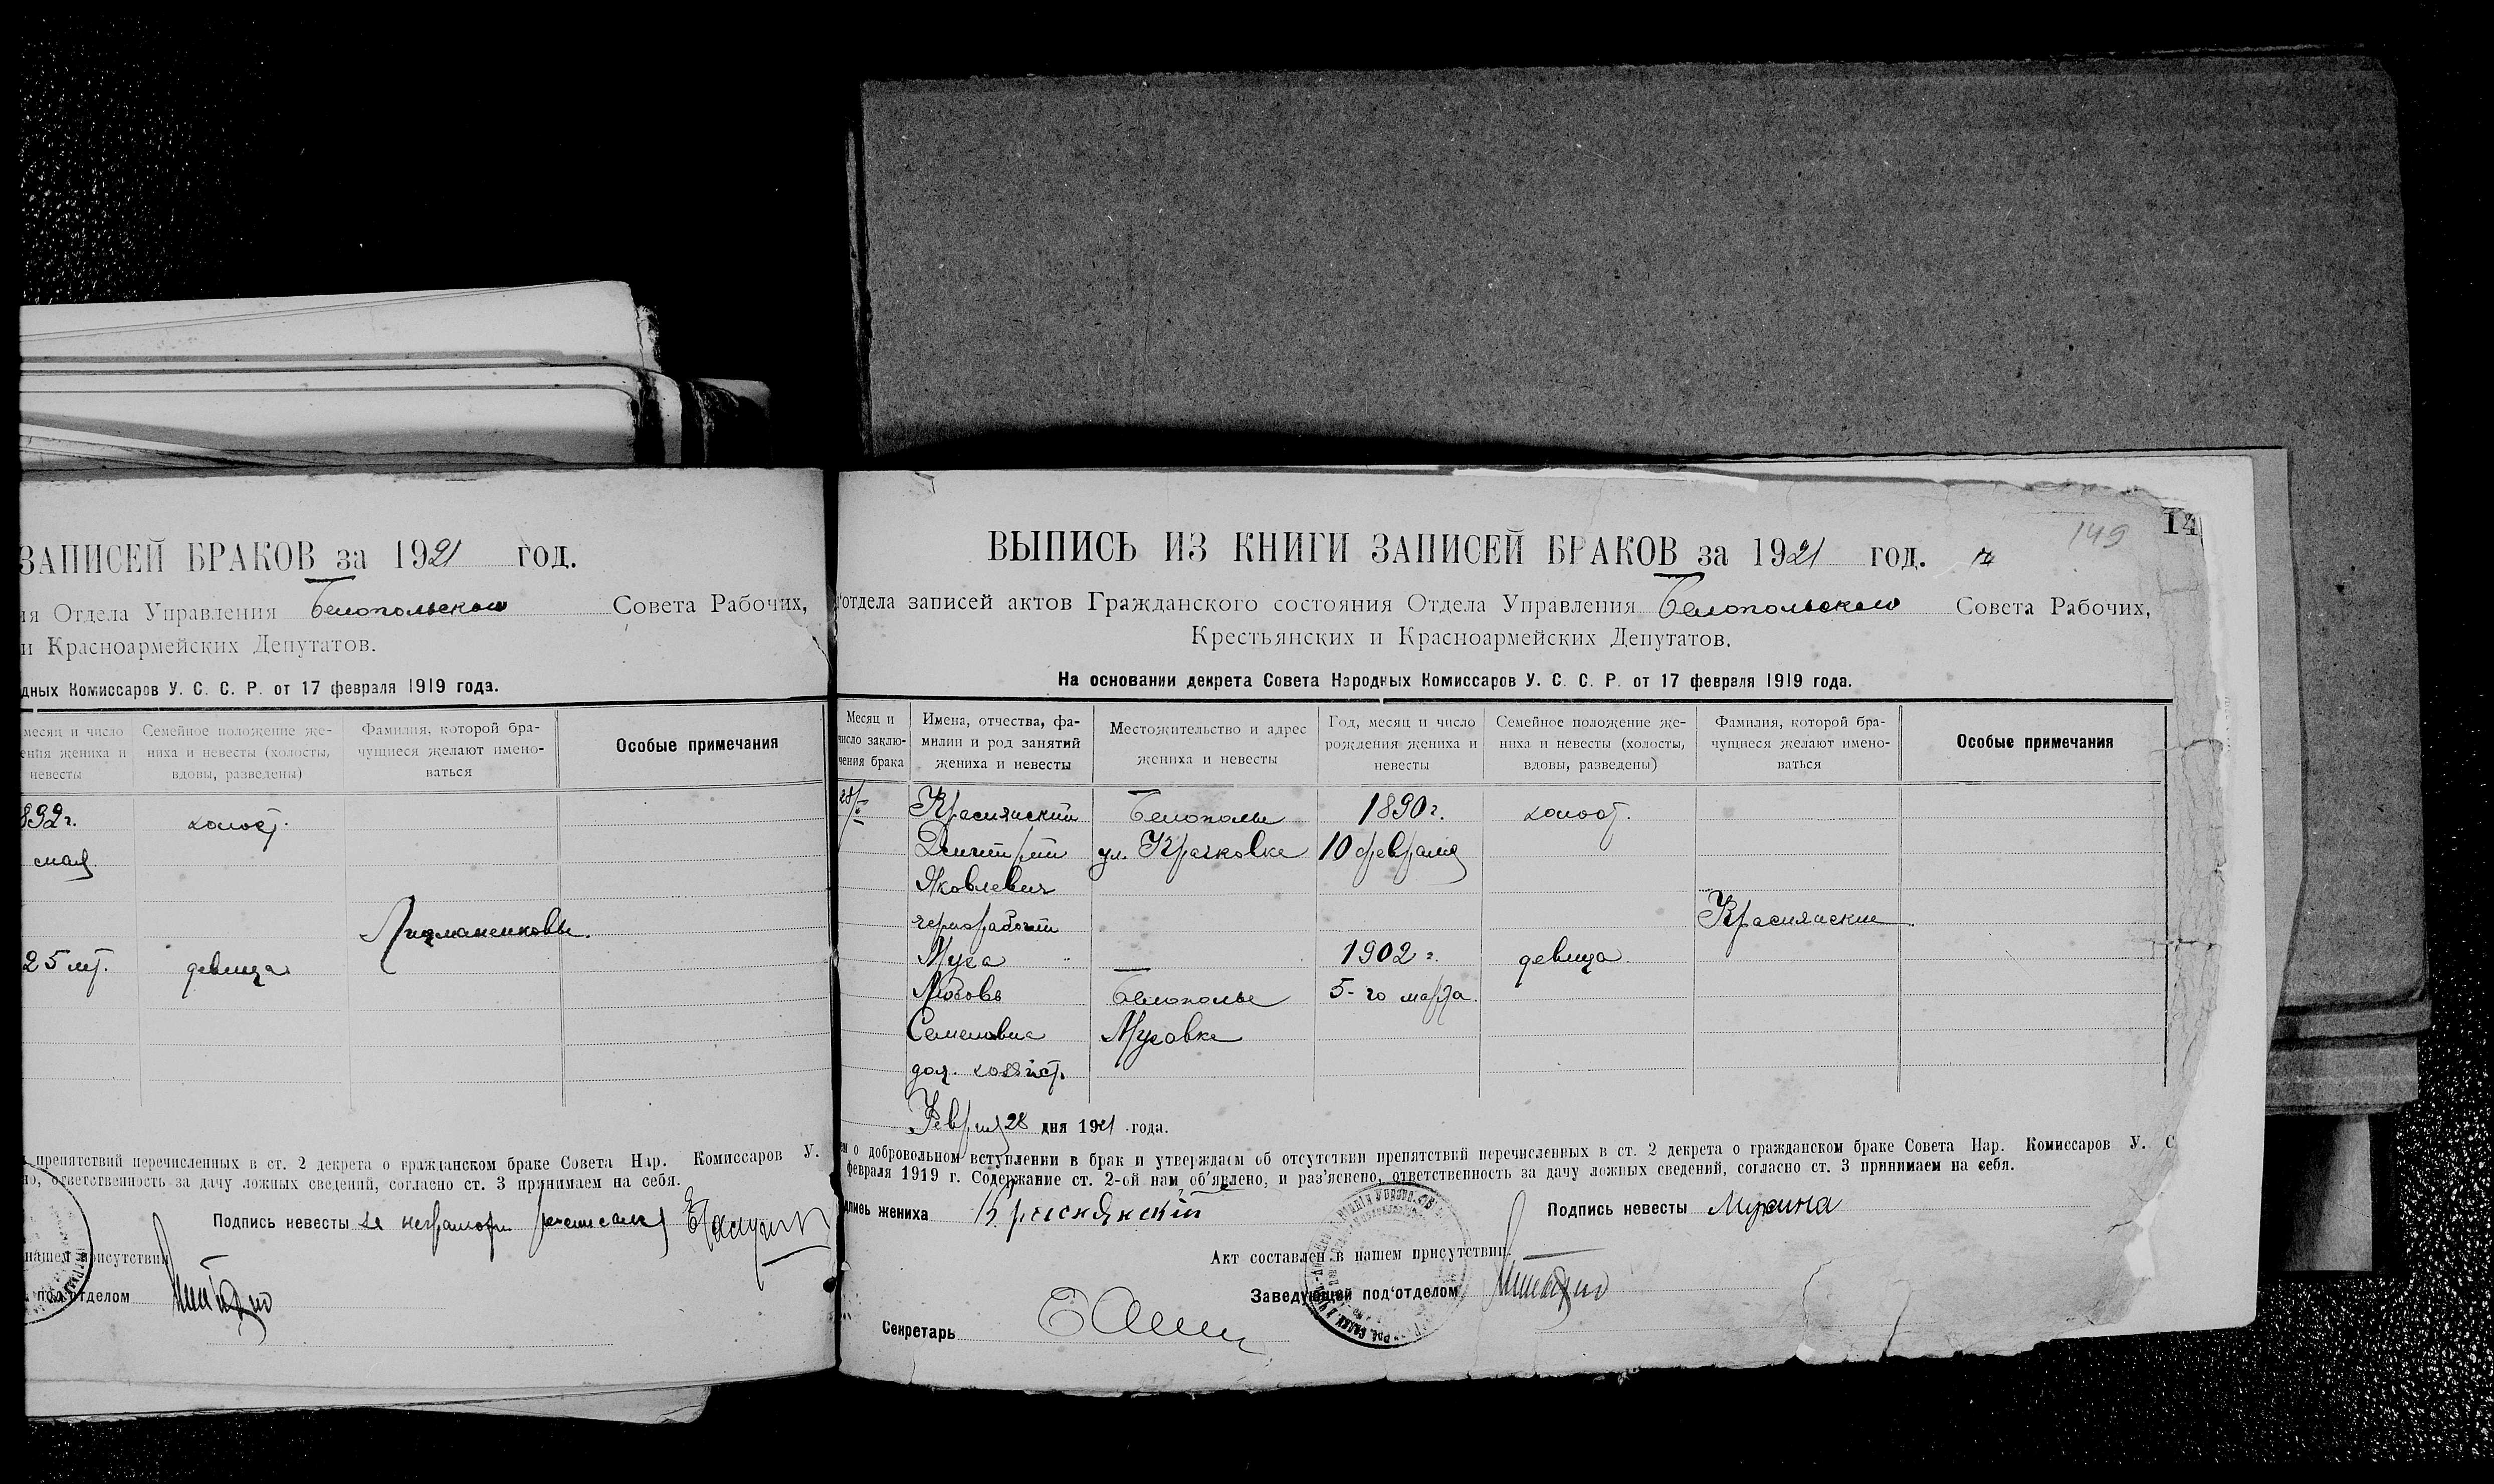 ЗАПИСЕЙ БРАКОВ за 1921 год.
ия Отдела Управления Белопольского Совета Рабочих,
и Красноармейских Депутатов.
дных Комиссаров У. С. С. Р. от 17 февраля 1919 года.
месяц и число
ения жениха и
невесты
Семейное положение же-
ниха и невесты (холосты,
вдовы, разведены)
Фамилия, которой бра-
чущиеся желают имено-
ваться
Особые примечания
892 г. холост.
мая
25 лет. девица
препятствий перечисленных в ст. 2 декрета о гражданском браке Совета Нар. Комиссаров У.
но, ответственность за дачу ложных сведений, согласно ст. 3 принимаем на себя.
Подпись невесты
нашем присутствии
под'отделом
149
14
ВЫПИСЬ ИЗ КНИГИ ЗАПИСЕЙ БРАКОВ за 1921 год.
'отдела записей актов Гражданского состояния Отдела Управления Белопольского Совета Рабочих,
Крестьянских и Красноармейских Депутатов.
На основании декрета Совета Народных Комиссаров У. С. С. Р. от 17 февраля 1919 года.
Месяц и
число заклю-
чения брака
Имена, отчества, фа-
милии и род занятий
жениха и невесты
Местожительство и адрес
жениха и невесты
Год, месяц и число
рождения жениха и
невесты
Семейное положение же-
ниха и невесты (холосты,
вдовы, разведены)
Фамилия, которой бра-
чущиеся желают имено-
ваться
Особые примечания
Краснянский Белополье 1890 г. холост.
Дмитрий ул. Крачковка 10 февраля
Яковлевич
чернорабочий Краснянские
Муха 1902 г. девица.
Любовь Белополье 5-го марта.
Семеновна Муховка
дом. хозяйст.
Февраля 28 дня 1921 года.
ем о добровольном вступлении в брак и утверждаем об отсутствии препятствий перечисленных в ст. 2 декрета о гражданском браке Совета Нар. Комиссаров У. С
февраля 1919 г. Содержание ст. 2-ой нам об'явлено, и раз'яснено, ответственность за дачу ложных сведений, согласно ст. 3 принимаем на себя.
дпись жениха Краснянский Подпись невесты Мухина
Акт составлен в нашем присутствии.
Заведующей под'отделом
Секретарь